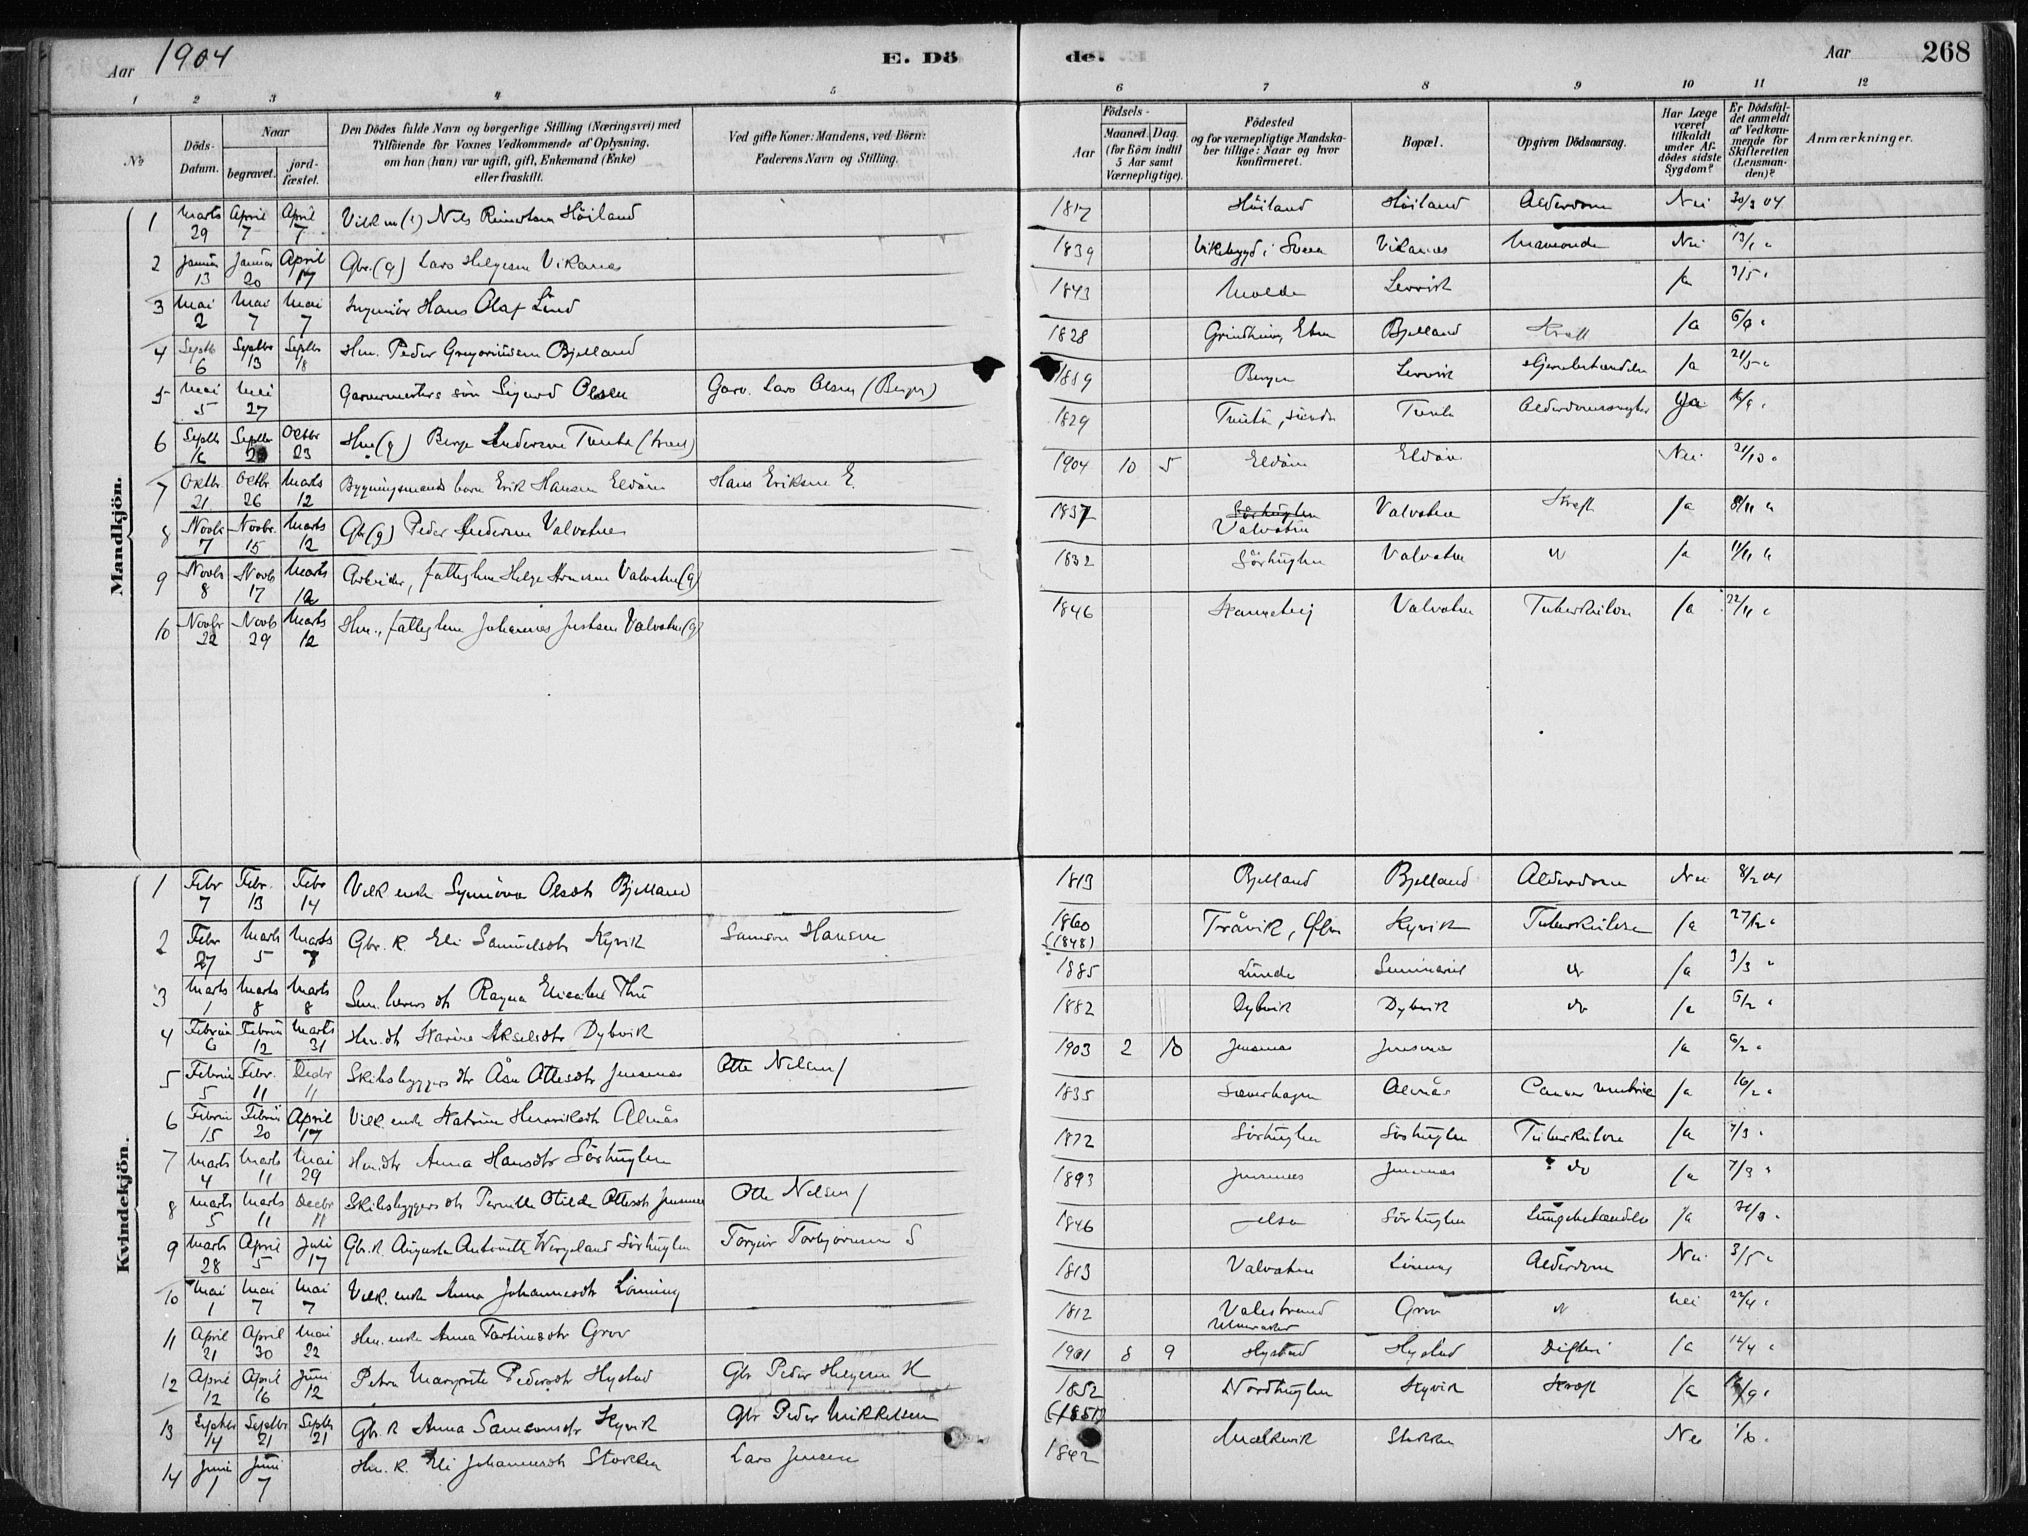 Aar 1904 E. Dö de. Aar 268
1 2 3 4 5 6 7 8 9 10 11 12
No Döds-Datum. Naar begravet. jord-fæstet. Den Dödes fulde Navn og borgerlige Stilling (Næringsvei) med Tilföiende for Voxnes Vedkommende af Oplysning, om han (hun) var ugift, gift, Enkemand (Enke) eller fraskilt. Ved gifte Koner: Mandens, ved Börn: Faderens Navn og Stilling. Födsels- Aar Maaned. Dag. (for Börn indtil 5 Aar samt Værnepligtige). Födested og for værnepligtige Mandskaber tillige: Naar og hvor konfirmeret. Bopæl. Opgiven Dödsaarsag. Har Læge været tilkaldt under Afdödes sidste Sygdom? Er Dödsfaldet anmeldt af Vedkommende for Skifteretten (Lensmanden)? Anmærkninger.
Mandkjön.
1 Marts 29 April 7 April 7 Nils Höiland 1817 Höiland Höiland Alderdom Nei 30/3 04
2 Januar 13 Januar 20 April 17 Gbr. (g) Lars Helgesen Vikanes 1839 Vikebygd i Vikanes Nei 13/1 "
3 Mai 2 Mai 7 Mai 7 Hans Olaf Lund 1843 Molde Lervik Ja 3/5 "
4 Septb 6 Septbr 13 Septbr 18 Hm. Peder Gregoriussen Bjelland 1828 Grindheim, Etne Bjelland Kræft Ja 6/9 "
5 Mai 5 Mai 27 Garvermesters sön Sigurd Olsen Garv. Lars Olsen (Bergen) Bergen Lervik Ja 21/5 "
6 Septbr 16 Septbr Octbr 23 Hm (g) Berge Andersen 1829 Ja
7 Oktbr. 21 Oktbr. 26 Marts 12 Bygningsmands barn Erik Hansen Eldöen Hans Eriksen E. 1904 10 5 Eldöen Eldöen Nei 21/10 "
8 Novbr 7 Novbr. 15 Marts 12 Gbr (g) Peder Andersen Valvatne 1837 Sörhuglen Valvatne Valvatne Kræft Ja 8/11 "
9 Novbr 8 Novb 17 Marts 12 Arbeider, fattiglem Helge Valvatne (g) 1832 Sörhuglen Valvatne do Ja 11/11 "
10 Novbr 22 Novbr 29 Marts 12 Hm., fattiglem Johannes Valvatne (g) 1846 Valvatne Tuberkulose Ja 22/11 "
Kvindekjön.
1 Febr 7 Febr. 13 Febr 14 Vilk. enke Synnöva Olsdtr Bjelland 1813 Bjelland Bjelland Alderdom Nei 8/2 04
2 Febr 27 Marts 5 Marts Gbr. k. Eli Samuelsdtr Kyvik Samson Hansen 1860 (1848) Tråvik, Ølen Kyvik Tuberkulose Ja 27/2 "
3 Marts 1 Marts 8 Marts 8 Sem. lærers dtr Ragna 1885 Lunde Seminariet do Ja 3/3 "
4 Februar 6 Februar 12 Marts 31 Hm. dtr Karine Akselsdtr Dybvik 1882 Dybvik Dybvik do Ja 6/2 "
5 Februar 5 Febr. 11 Decbr 11 Skibsbyggers dtr Åsa Ottesdtr Jensenes Otte Nelsen 1903 2 10 Jensenes Jensenes Ja 6/2 "
6 Februar 15 Februar 20 April 17 Vilk. enke Katrine Henriksdtr Alnås 1835 Alnås Cancer Ja 16/2 "
7 Marts 4 Marts 11 Mai 29 Hm. dtr Anna Hansdtr Sörhuglen 1872 Sörhuglen Sörhuglen Tuberkulose Ja 7/3 "
8 Marts 5 Marts 11 Decbr 11 Skibsbyggers dtr Pernille Otilde Ottesdtr Jensenes Otte Nelsen 1893 Jensenes Jensenes do Ja 7/3 "
9 Marts 28 April 5 Juli 17 Gbr. k. Augusta Antonette Wergeland Sörhuglen Torgeir Torbjörnsen S 1846 Jelsa Sörhuglen Lungebetændelse Ja
10 Mai 1 Mai 7 Mai 7 Vilk. enke Anna Johannesdtr Lönning 1813 Valvatne Lönning Alderdom Nei 3/5 "
11 April 21 April 30 Mai 22 Hm. enke Anna Grov 1812 Valestrand Grov do nei 22/4 "
12 April 12 April 16 Juni 12 Petra Margrete Pedersdtr Hystad Gbr Peder Helgesen H 1901 8 9 Hystad Hystad Difteri Ja 14/4 "
13 Septbr 14 Septbr 21 Septbr 21 Gbr. k. Anna Samsonsdtr Kyvik Gbr Peder Mikkelsen 1852 (1851) Nordhuglen Kyvik Kræft Ja
14 Juni 1 Juni 7 Hm. k. Eli Johannesdtr Stokken Lars Jensen 1842 Mælkevik Stokken Nei